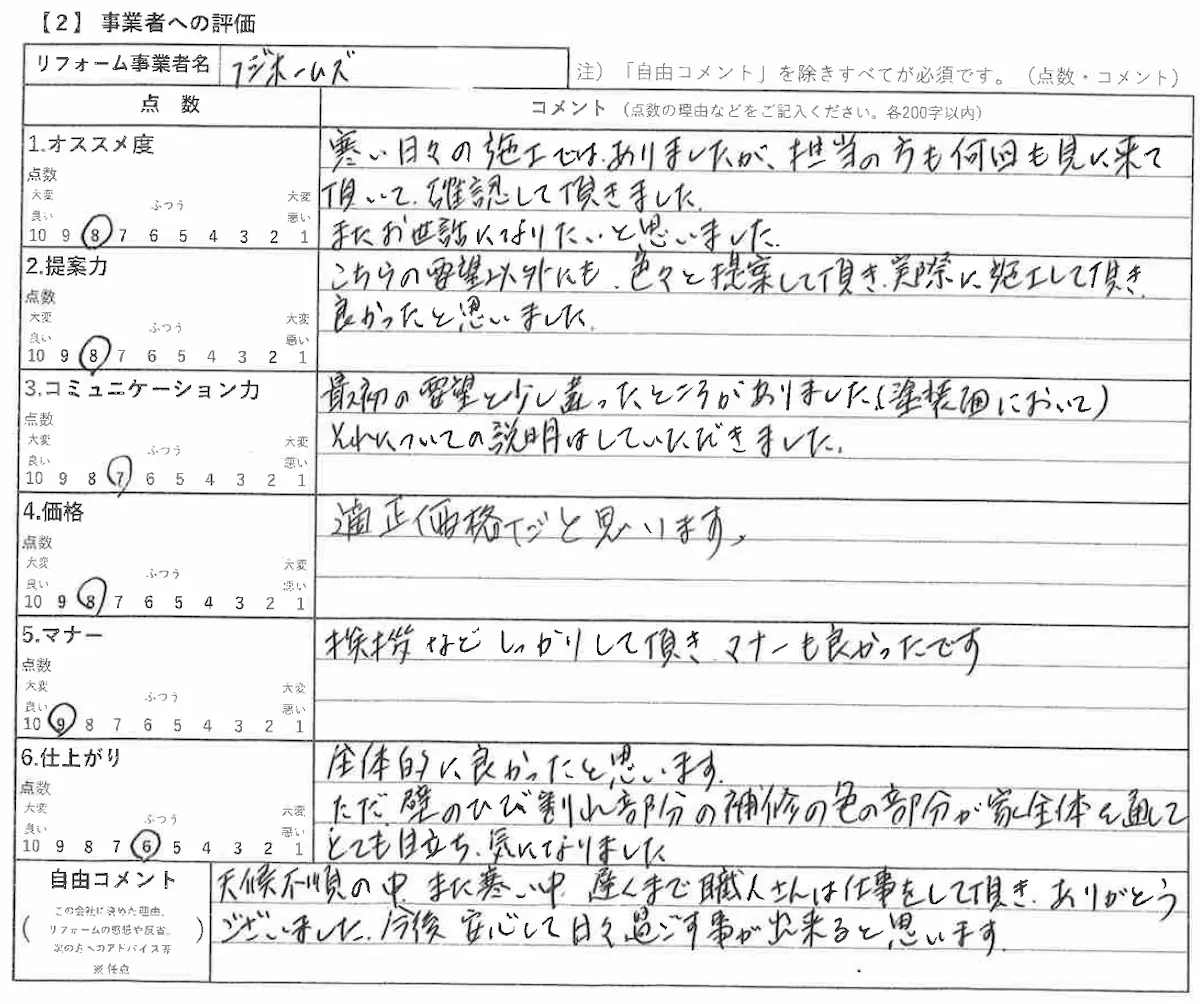 【2】 事業者への評価
リフォーム事業者名 フジホームズ
注）「自由コメント」を除きすべてが必須です。（点数・コメント）
点 数
コメント （点数の理由などをご記入ください。各200字以内）
1.オススメ度
点数
大変良い ふつう 大変悪い
10 9 8 7 6 5 4 3 2 1
寒い日々の施工ではありましたが、担当の方も何回も見に来て
頂いて、確認して頂きました。
またお世話になりたいと思いました。
2.提案力
点数
大変良い ふつう 大変悪い
10 9 8 7 6 5 4 3 2 1
こちらの要望以外にも、色々と提案して頂き、実際に施工して頂き
良かったと思いました。
3.コミュニケーション力
点数
大変良い ふつう 大変悪い
10 9 8 7 6 5 4 3 2 1
最初の要望と少し違ったところがありました。(塗装面において)
それについての説明はしていただきました。
4.価格
点数
大変良い ふつう 大変悪い
10 9 8 7 6 5 4 3 2 1
適正価格だと思います。
5.マナー
点数
大変良い ふつう 大変悪い
10 9 8 7 6 5 4 3 2 1
挨拶などしっかりして頂き、マナーも良かったです
6.仕上がり
点数
大変良い ふつう 大変悪い
10 9 8 7 6 5 4 3 2 1
全体的に良かったと思います。
ただ、壁のひび割れ部分の補修の色の部分が家全体を通して
とても目立ち、気になりました
自由コメント
（この会社に決めた理由、
リフォームの感想や反省、
次の方へのアドバイス等
※任点）
天候不順の中、また寒い中、遅くまで職人さんは仕事をして頂き、ありがとう
ございました。今後、安心して日々過ごす事が出来ると思います。